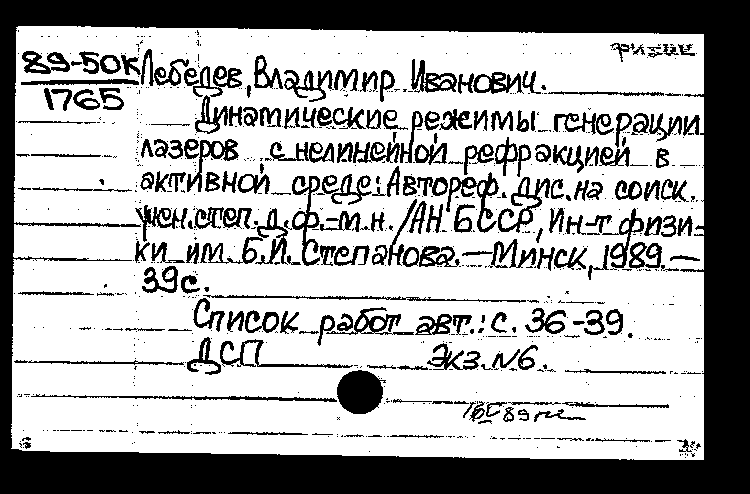 физик
89-50К
1765
Лебедев, Владимир Иванович.
Динамические режимы генерации
лазеров с нелинейной рефракцией в
активной среде: Автореф. дис. на соиск.
учен. степ. д. ф.-м. н. /АН БССР, Ин-т физи-
ки им. Б.И. Степанова. — Минск, 1989. —
39с.
Список работ авт.: с. 36-39.
ДСП Экз. №6.